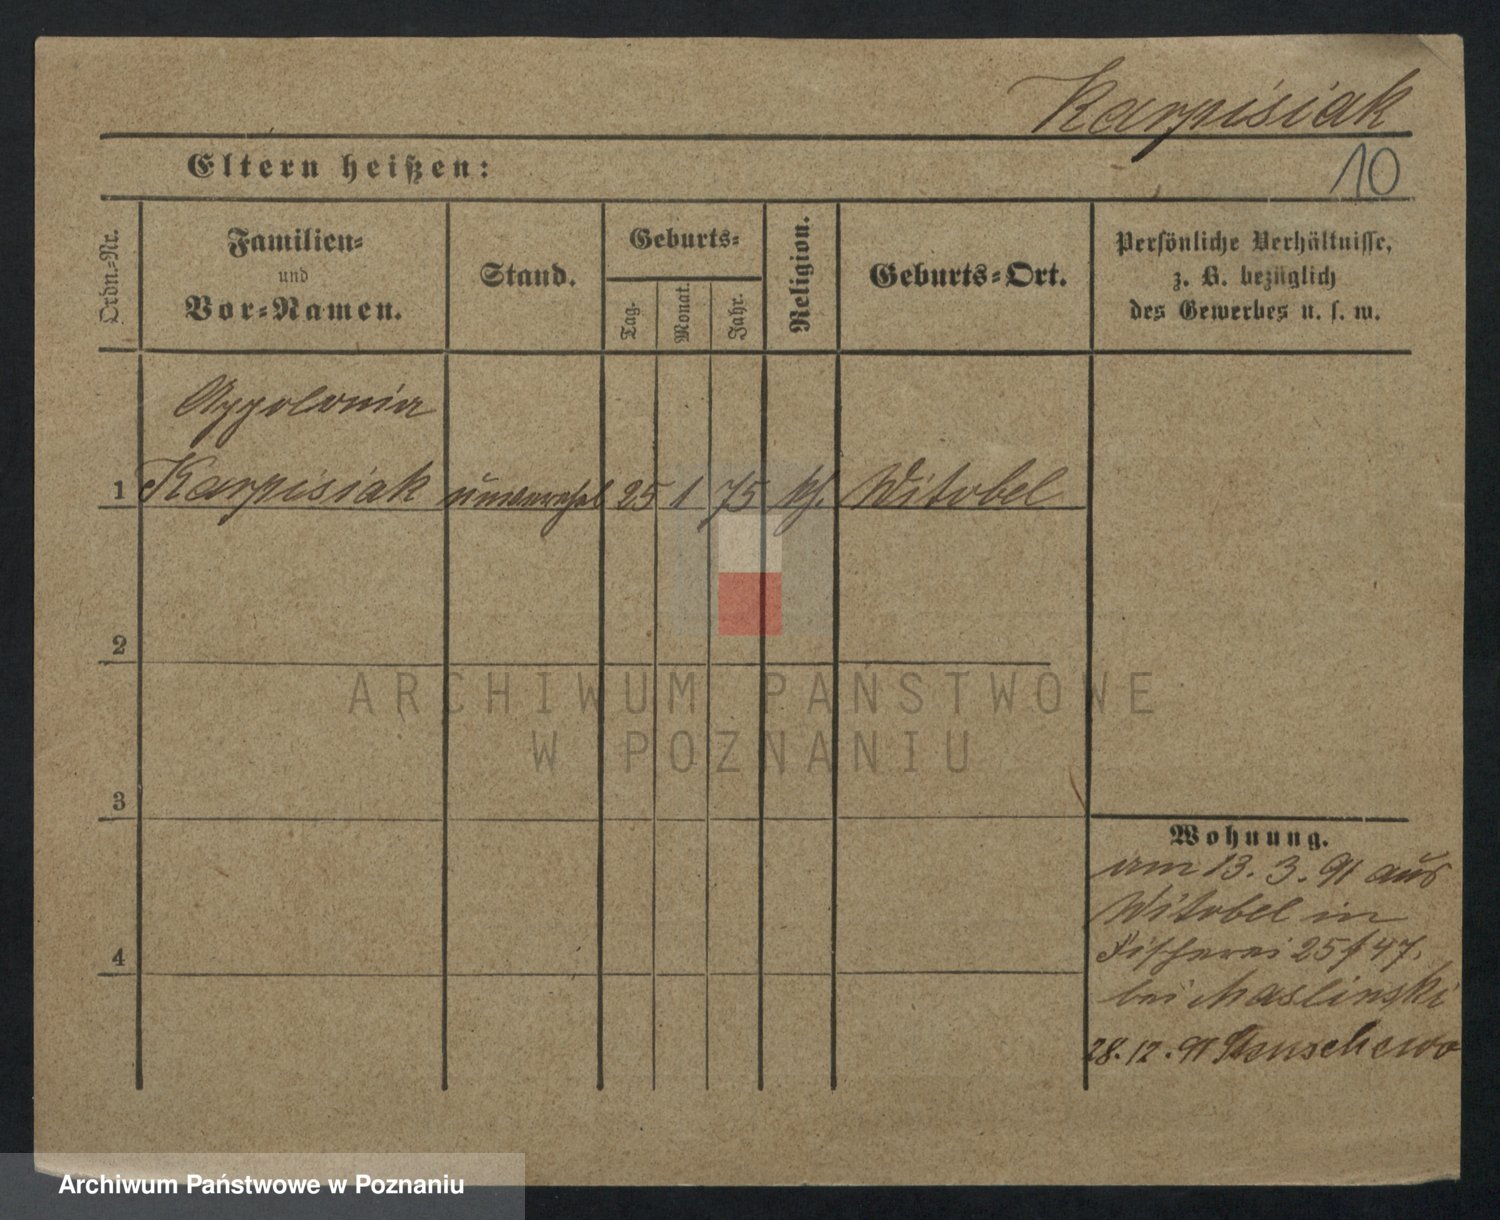 Karpisiak
10
Eltern heißen:
Ordn.-Nr.
Familien-
und
Vor-Namen.
Stand.
Geburts-
Tag.
Monat.
Jahr.
Religion.
Geburts-Ort.
Persönliche Verhältnisse,
z. B. bezüglich
des Gewerbes u. s. w.
Appolonia
1 Karpisiak unverehel 25 1 75 kth. Witobel
2
ARCHIWUM PAŃSTWOWE
W POZNANIU
3
Wohnung.
am 13. 3. 91 aus
Witobel in
Fischerei 25/47.
bei Maslinski
4
28. 12. 91 Stenschewo
Archiwum Państwowe w Poznaniu